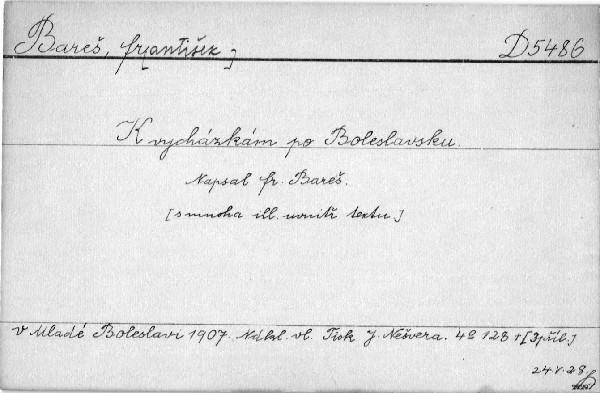 Bareš, Fr[antišek] D5486
K vycházkám po Boleslavsku.
Napsal Fr. Bareš.
[s mnoha ill. uvnitř textu]
v Mladé Boleslavi 1907. Nákl. vl. Tisk J. Nešvera. 4º 128 + [3 příl.]
24.V.28.